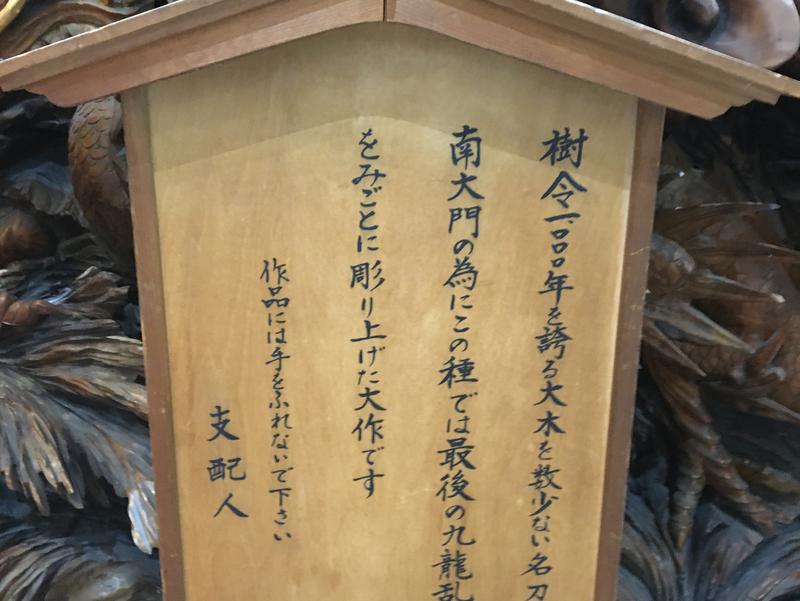 樹令一、〇〇〇年を誇る大木を数少ない名刀
南大門の為にこの種では最後の九龍乱
をみごとに彫り上げた大作です
作品には手をふれないで下さい
支配人